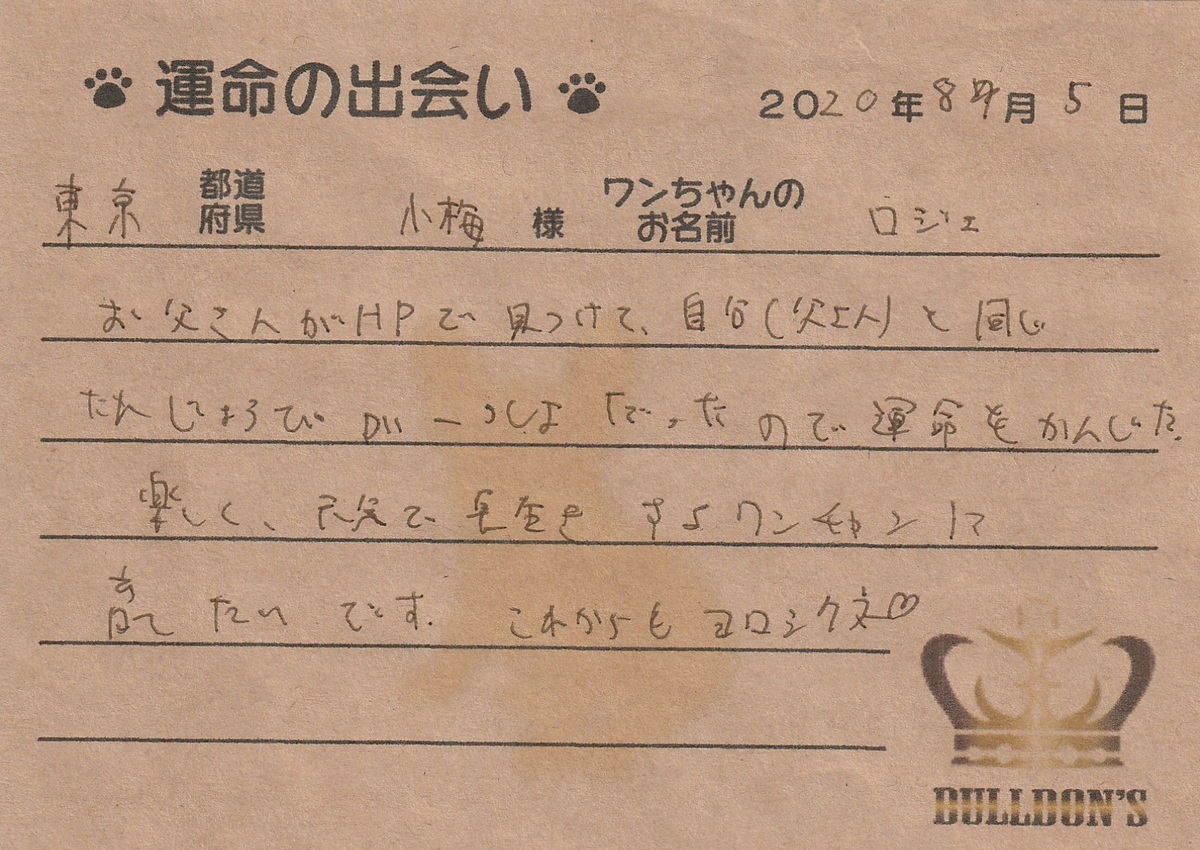 運命の出会い 2020年8月5日
東京 都道府県 小梅 様 ワンちゃんのお名前 ロジェ
お父さんがHPで見つけて、自分(父さん)と同じ
たんじょうびが いっしょ だったので運命をかんじた。
楽しく、元気で長生きするワンチャンに
育てたいです。これからもヨロシク♡
BULLDON'S